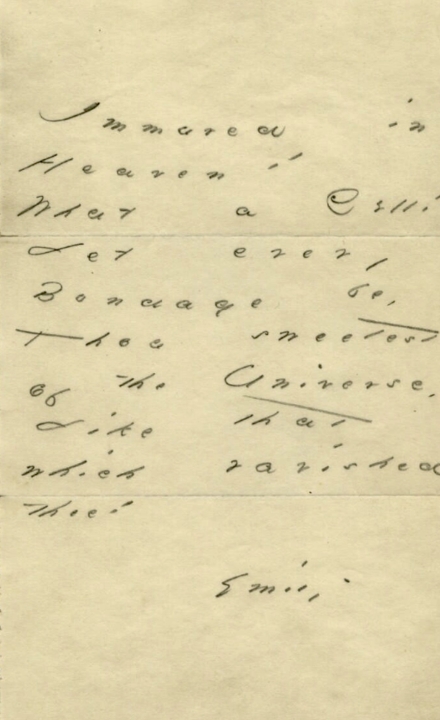 Immured in
Heaven!
What a Cell!
Let every
Bondage be,
Thou sweetest
of the Universe,
Like that
which ravished
thee!
Emily.